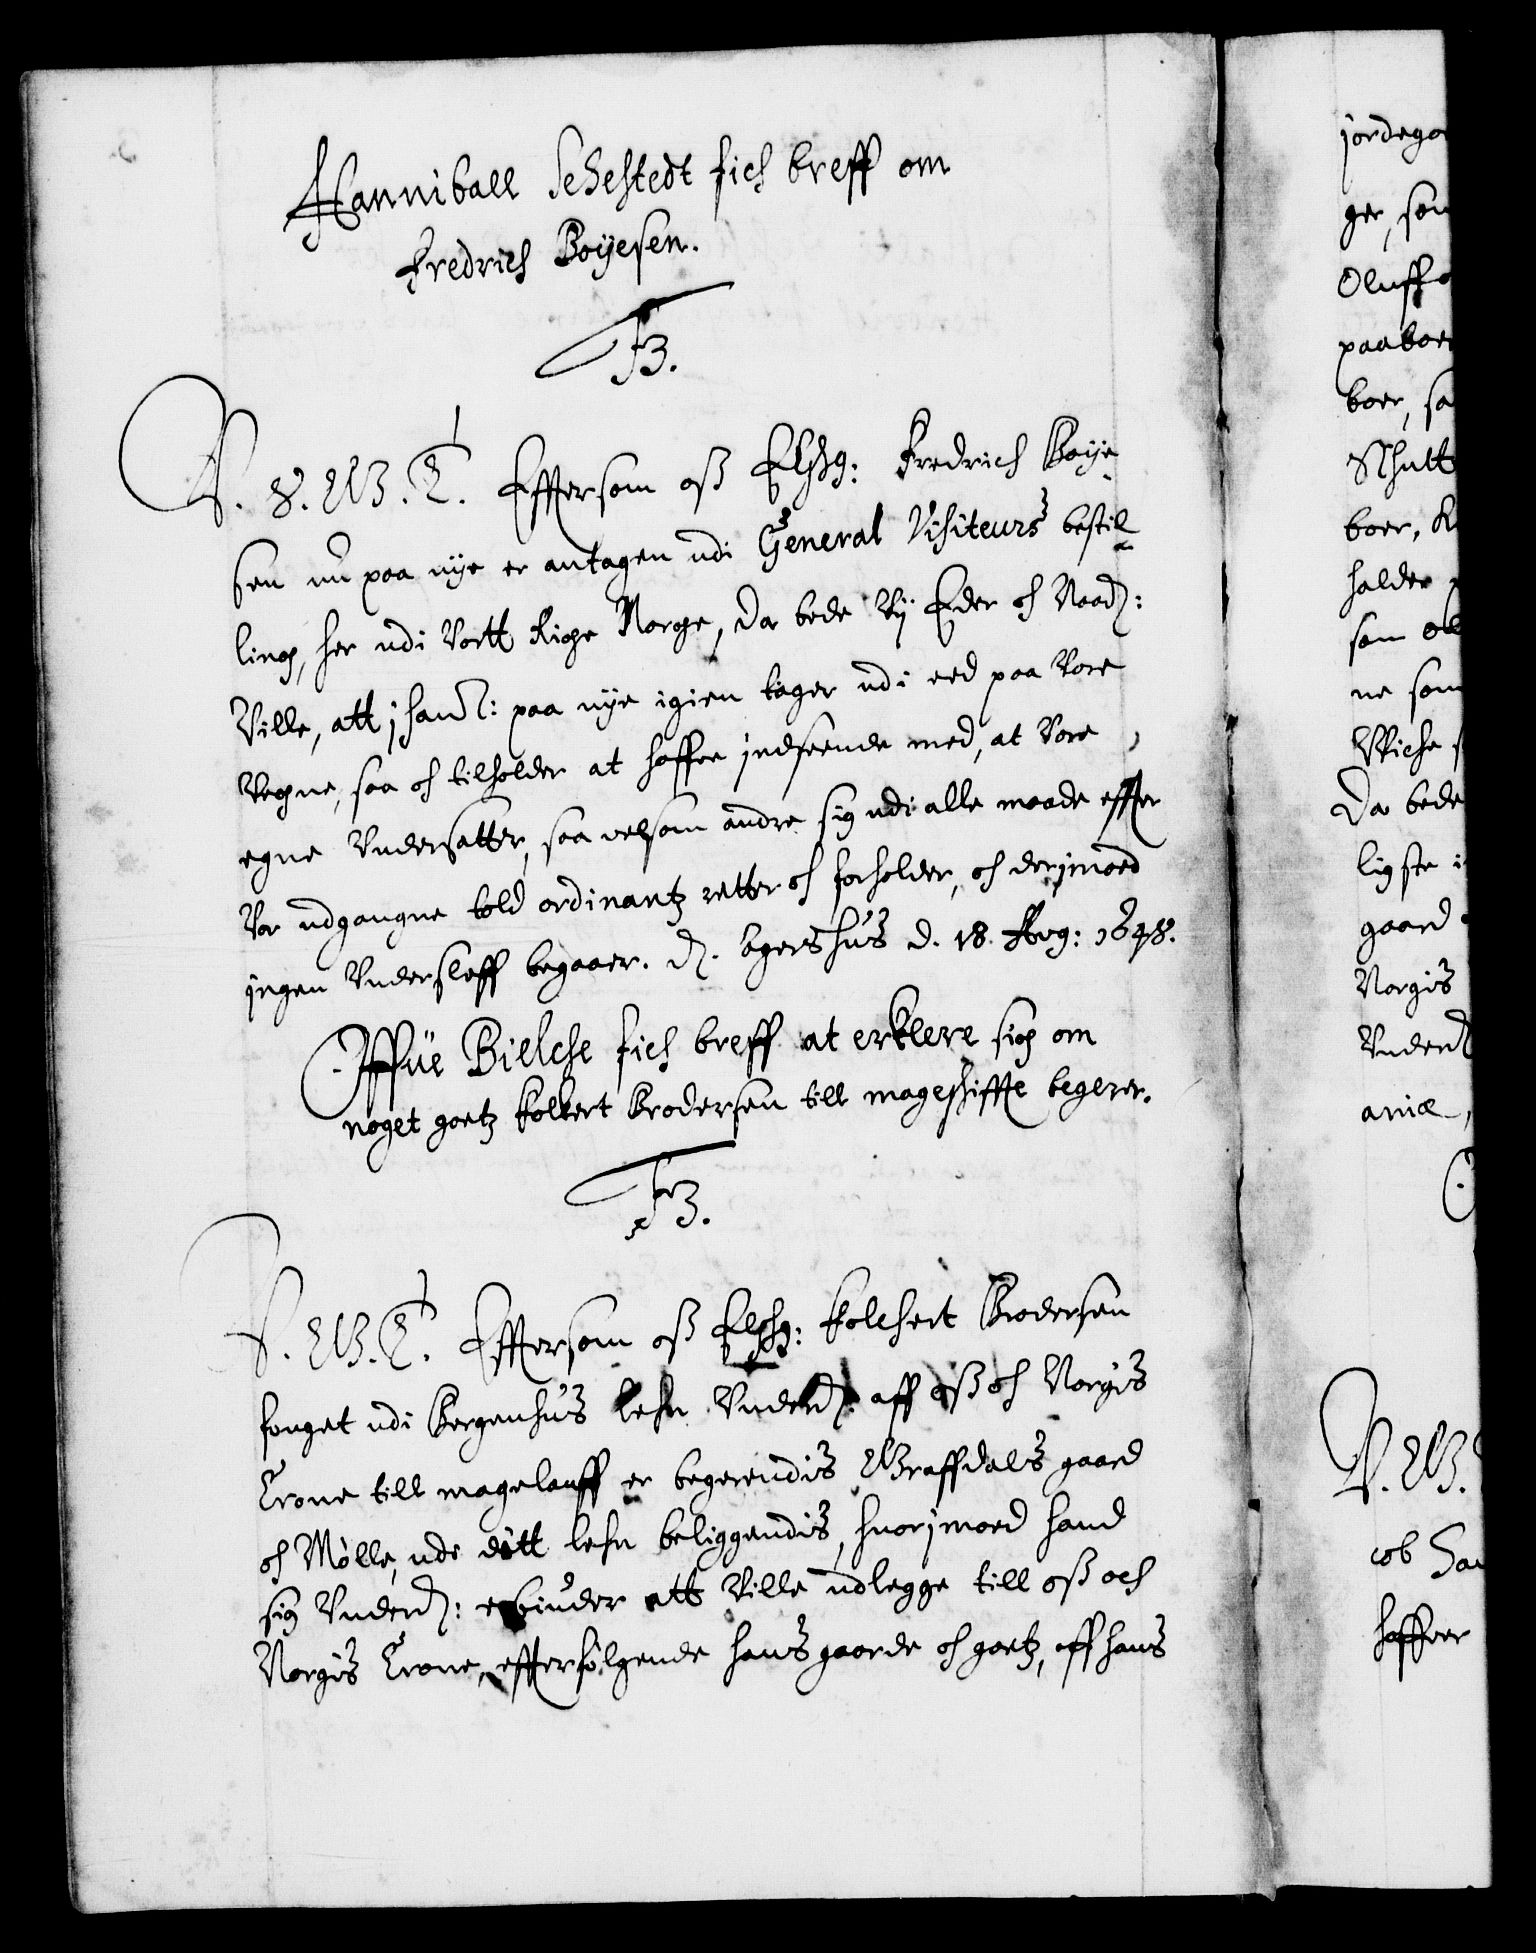 Hanniball Sehestedt fich breff om
Fredrich Boÿesen.
F3.
V. S. G. T. Efftersom oß Elshg: Fredrich Boÿe-
sen nu paa nÿe er antagen udi General Visiteurs bestil-
ling, her udi Vortt Rige Norge, Da bede Vij Eder oh Naad:
Ville, att j hannl: paa nÿe igien tager udi eed paa Vore
Vegne, saa oh tilholder at haffue jndseende med, at Vore
egne Vndersatter, saa velsom andre sig udi alle maade effter
Vor udgangne told ordinantz retter oh forholder, oh derjmoed
jngen Vndersleff begaaer. D. Agershus d. 18. Aug: 1648.
Offue Bielche fich breff at erklere sig om
noget goetz Folkert Brodersen till mageshiffte begerer.
F3.
V. G. T. Efftersom oß Elshg: Folchert Brodersen
fouget udi Bergenhus lehn Vnderd. aff oß oh Norgis
Crone till magelauff er begerendis Graffdals gaard
oh Mølle, udi ditt lehn beliggendis, huorjmoed hand
sig Vnderd: erbiuder att Ville udlegge till oß och
Norgis Crone, effterfølgende hans gaarde oh goetz, aff hans
jordego
ger, som
Oluff
paaboe
boer, sa
boer,
holder
som
ne som
Da bede
ligste i
gaard
Norgis
Vnderd
aniæ,
V. G.
cob
haffuer